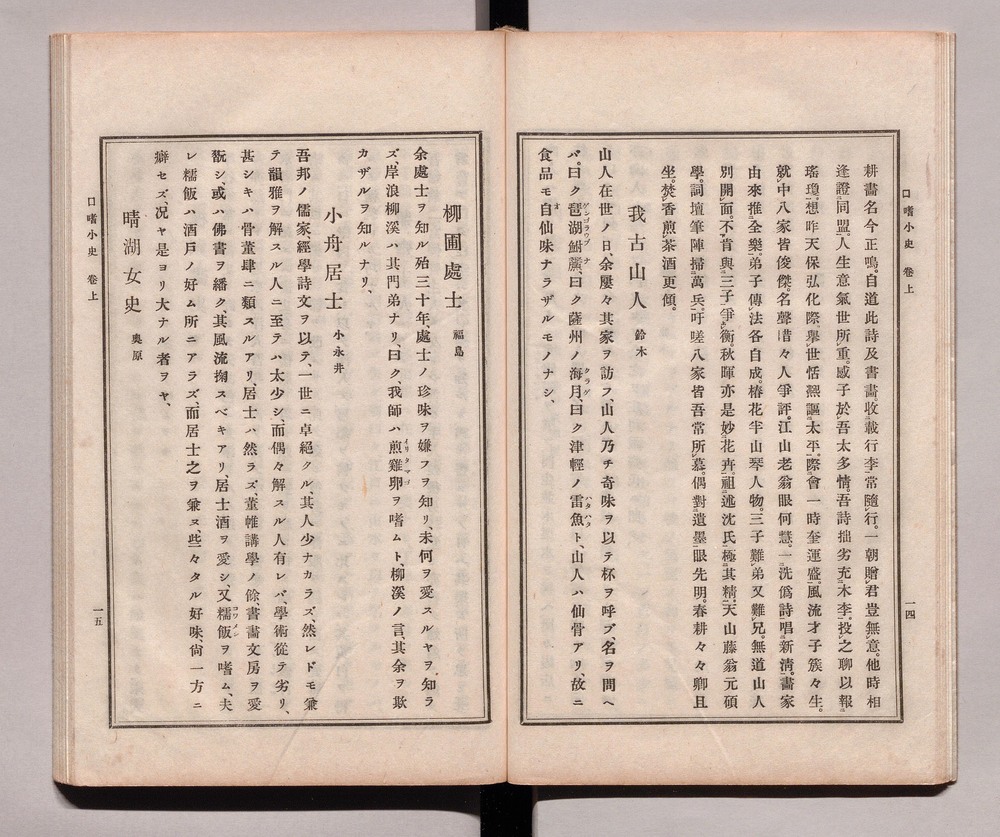 口嗜小史　卷上
一四
耕畵名今正鳴。自道此詩及書畵。收載行李常隨行。一朝贈君豈無意。他時相
逢證同盟。人生意氣世所重。感子於吾太多情。吾詩拙劣充木李。投之聊以報
瑤瓊。想昨天保弘化際。擧世恬凞謳太平。際會一時奎運盛。風流才子簇々生。
就中八家皆俊傑。名聲嘖々人爭評。江山老翁眼何慧。一洗僞詩唱新淸。畵家
由來推全樂。弟子傳法各自成。椿花半山琴人物。三子難弟又難兄。無道山人
別開面。不肯與三子爭衡。秋暉亦是妙花卉。祖述沈氏極其精。天山藤翁元碩
學。詞壇筆陣掃萬兵。吁嗟八家皆吾常所慕。偶對遺墨眼先明。春耕々々卿且
坐。焚香煎茶酒更傾。
我古山人　鈴木
山人在世ノ日、余屢々其家ヲ訪フ、山人乃チ奇味ヲ以テ杯ヲ呼ブ、名ヲ問ヘ
バ。曰ク琶湖鮒鱶、曰ク薩州ノ海月、曰ク津輕ノ雷魚ト、山人ハ仙骨アリ、故ニ
食品モ自仙味ナラザルモノナシ、
柳圃處士　福島
余處士ヲ知ル殆三十年、處士ノ珍味ヲ嫌フヲ知リ、未何ヲ愛スルヤヲ知ラ
ズ、岸浪柳溪ハ其門弟ナリ、曰ク、我師ハ煎雞卵ヲ嗜ムト、柳溪ノ言、其余ヲ欺
カザルヲ知ルナリ、
小舟居士　小永井
吾邦ノ儒家經學詩文ヲ以テ、一世ニ卓絕クル、其人少ナカラズ、然レドモ兼
テ韻雅ヲ解スル人ニ至テハ太少シ、而偶々解スル人有レバ、學術從テ劣リ、
甚シキハ骨董肆ニ類スルアリ、居士ハ然ラズ、董帷講學ノ餘、書畵文房ヲ愛
翫シ、或ハ佛書ヲ繙ク、其風流掬スベキアリ、居士酒ヲ愛シ、又糯飯ヲ嗜ム、夫
レ糯飯ハ酒戶ノ好ム所ニアラズ、而居士之ヲ兼ヌ、些々タル好味、尙一方ニ
癖セズ、况ヤ是ヨリ大ナル者ヲヤ、
晴湖女史　奧原
口嗜小史　卷上
一五